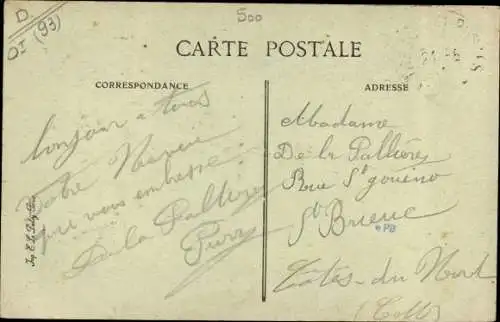 D
OJ (93)
500
CARTE POSTALE
CORRESPONDANCE
ADRESSE
bonjour a tous
Votre Neveu
qui vous embrasse
De la Pallière
Pierre
Madame
De la Pallière
Rue St gouéno
St Brieuc
PB
Côtes-du Nord